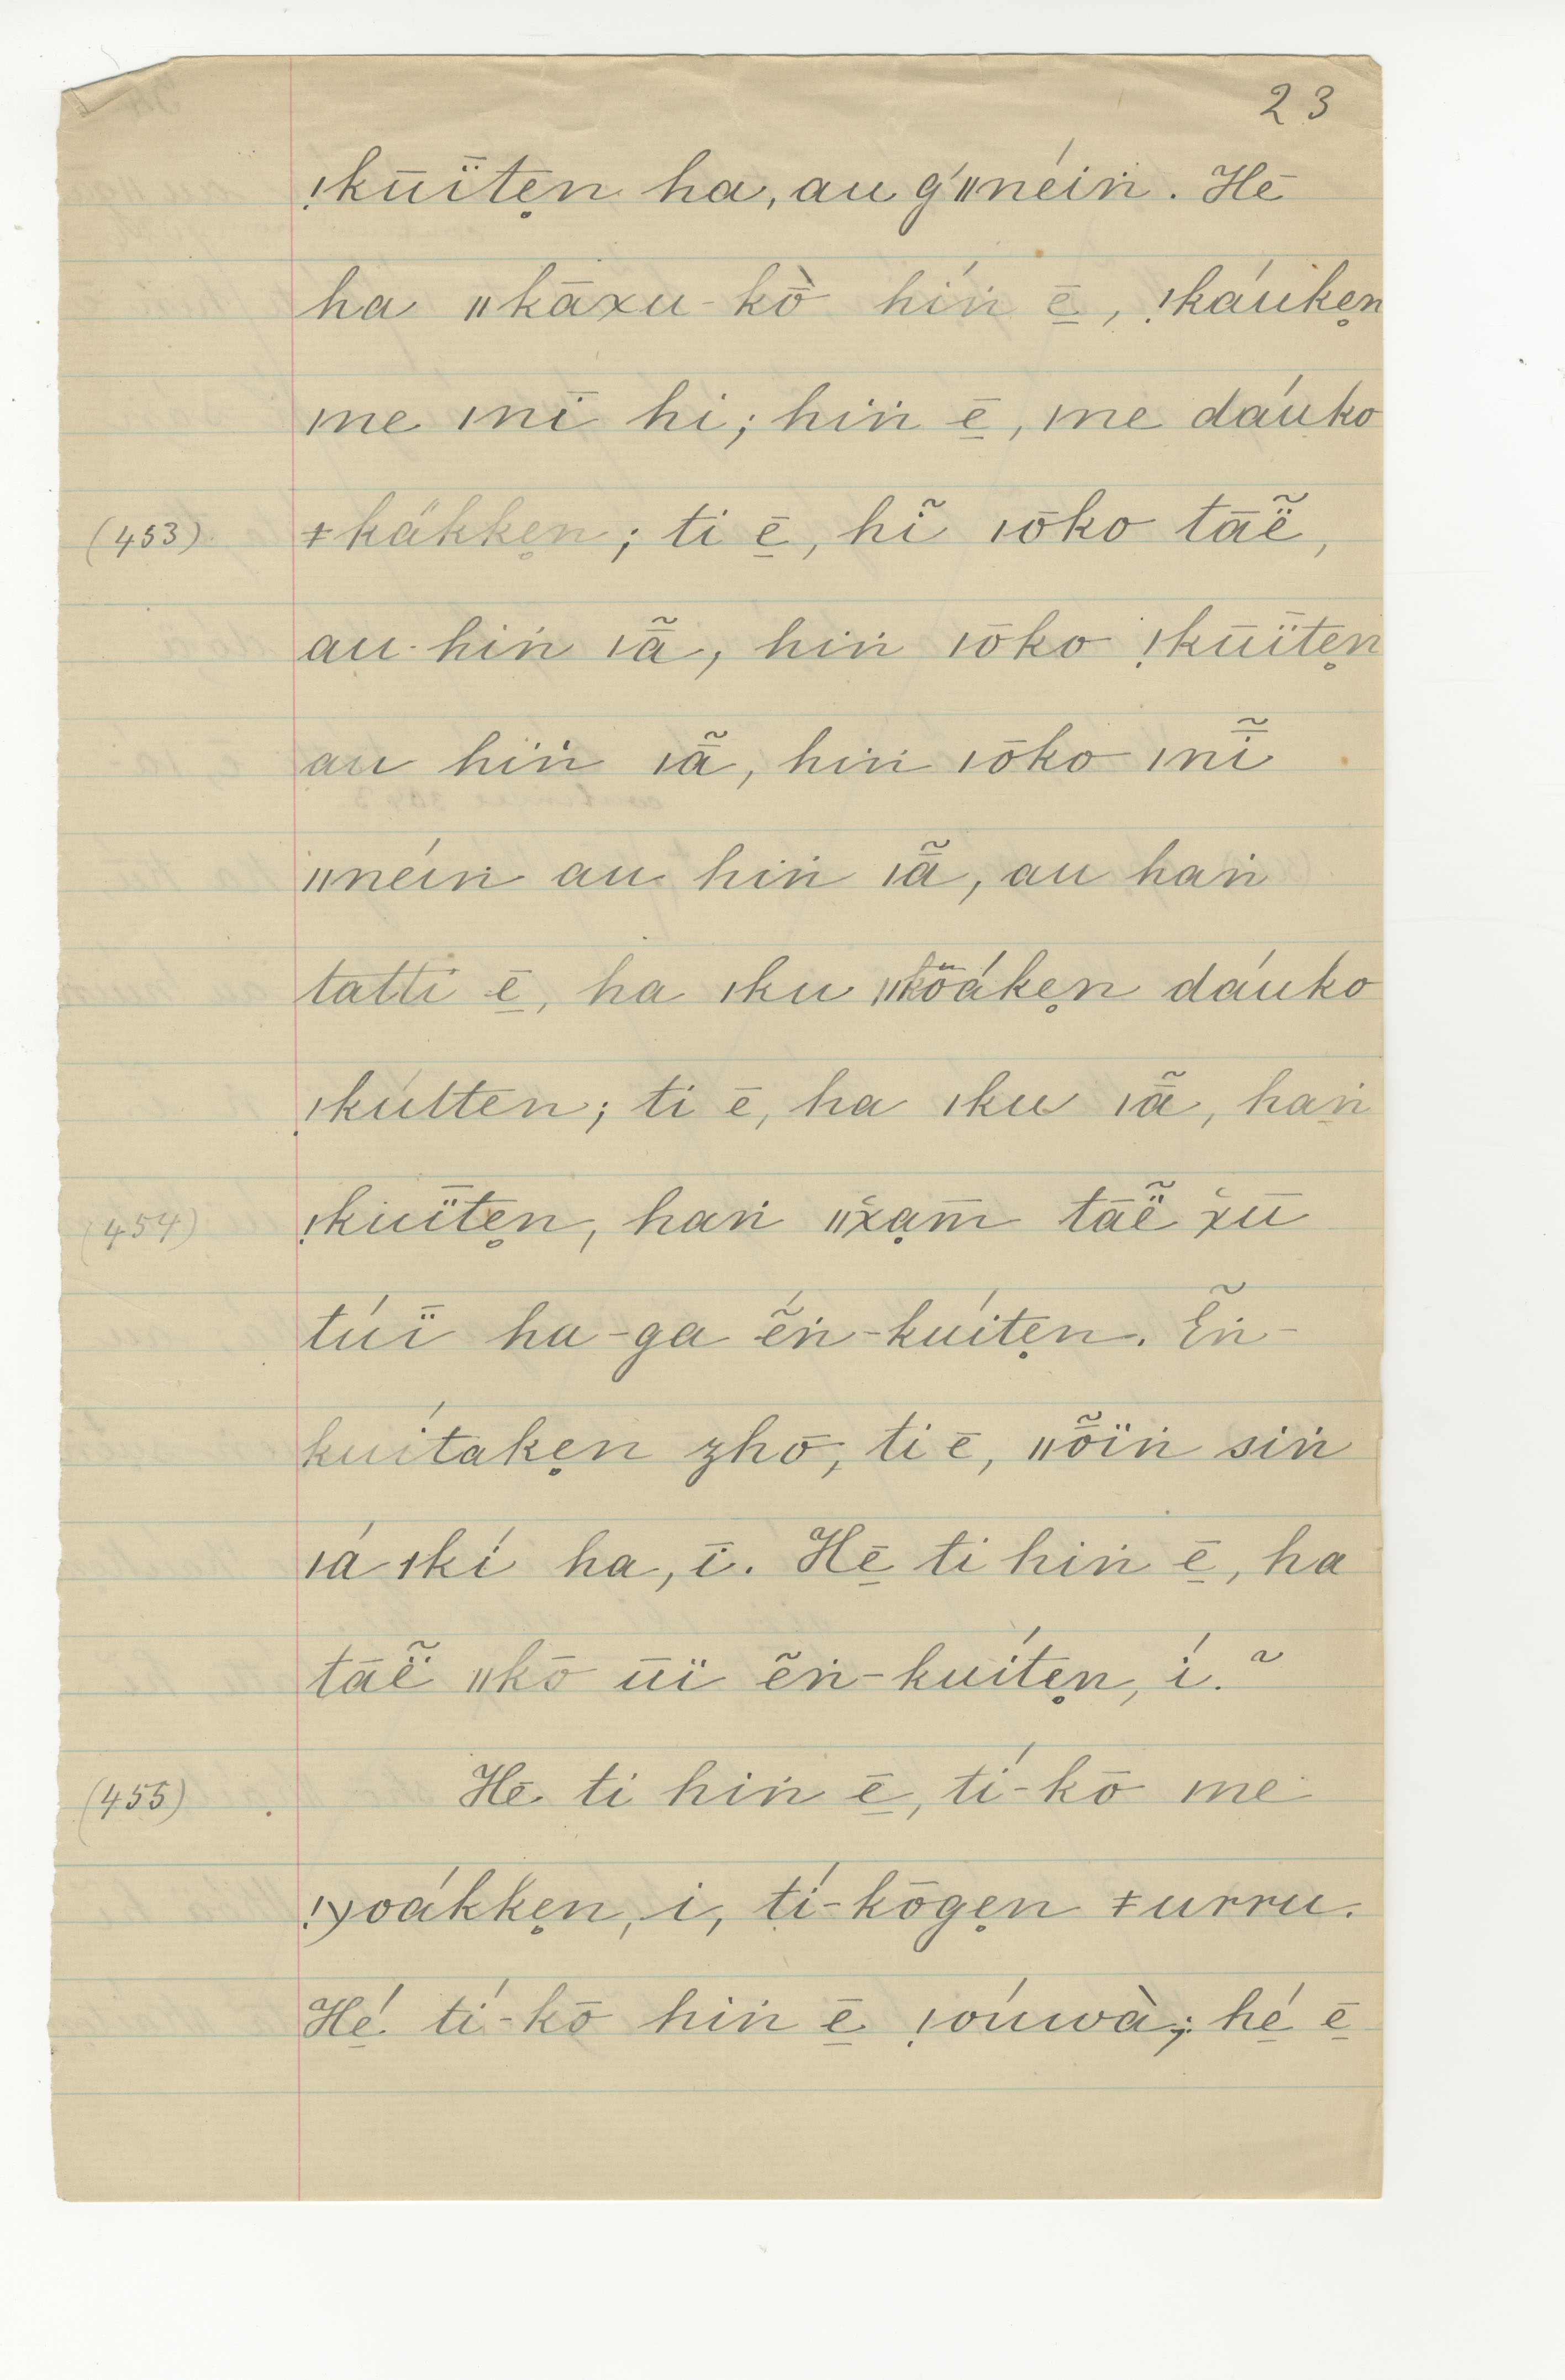 23
!kūïtẹn ha, au g'ǁnéiṅ. Hē
ha ǁkāxu-kò̄ híṅ ē̱, !káukẹn
me ǀnī hi; hiṅ ē̱, ǀne dáuko
(453) ǂkákkẹn; ti ē̱, hĩ ǀōko tā̃ë,
au hiṅ ǀā̃, hiṅ ǀōko !kūïtẹn
au hiṅ ǀā̃, hiṅ ǀōko ǀnī̃
ǁnéiṅ au hiṅ ǀā̃, au haṅ
tatti ē̱, ha ǀku ǁkȫákẹn dáuko
!kútten; ti ē, ha ǀku ǀā̃, haṅ
(454) !kuïtẹn, haṅ ǁx̌ạm̄ tāë̃ x̌ū
túï ha-ga ḗ̃ṅ-kúitẹn. Ẽ̄ṅ-
kuítakẹn zhō, ti ē, ǁȭïṅ siṅ
ǀá ǀkí ha, ī. Hē̱ ti hiṅ ē̱, ha
tāë̃ ǁkō ūï ẽ̄ṅ-kuítẹn, í.~
(455) Hē ti hiṅ ē̱, tí-kō ǀne
!ɣoákkẹn, i, tí-kōgẹn ǂurru.
Hé̱ tí-kō hiṅ ē̱ !óúwà; hé̱ ē̱